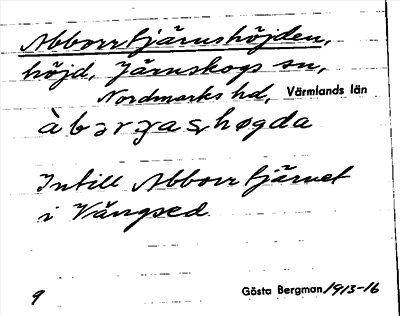 Abborrtjärnshöjden,
höjd, Järnskogs sn,
Nordmarks hd, Värmlands län
Intill Abborrtjärnet
i Vängsed
9 Gösta Bergman 1913-16